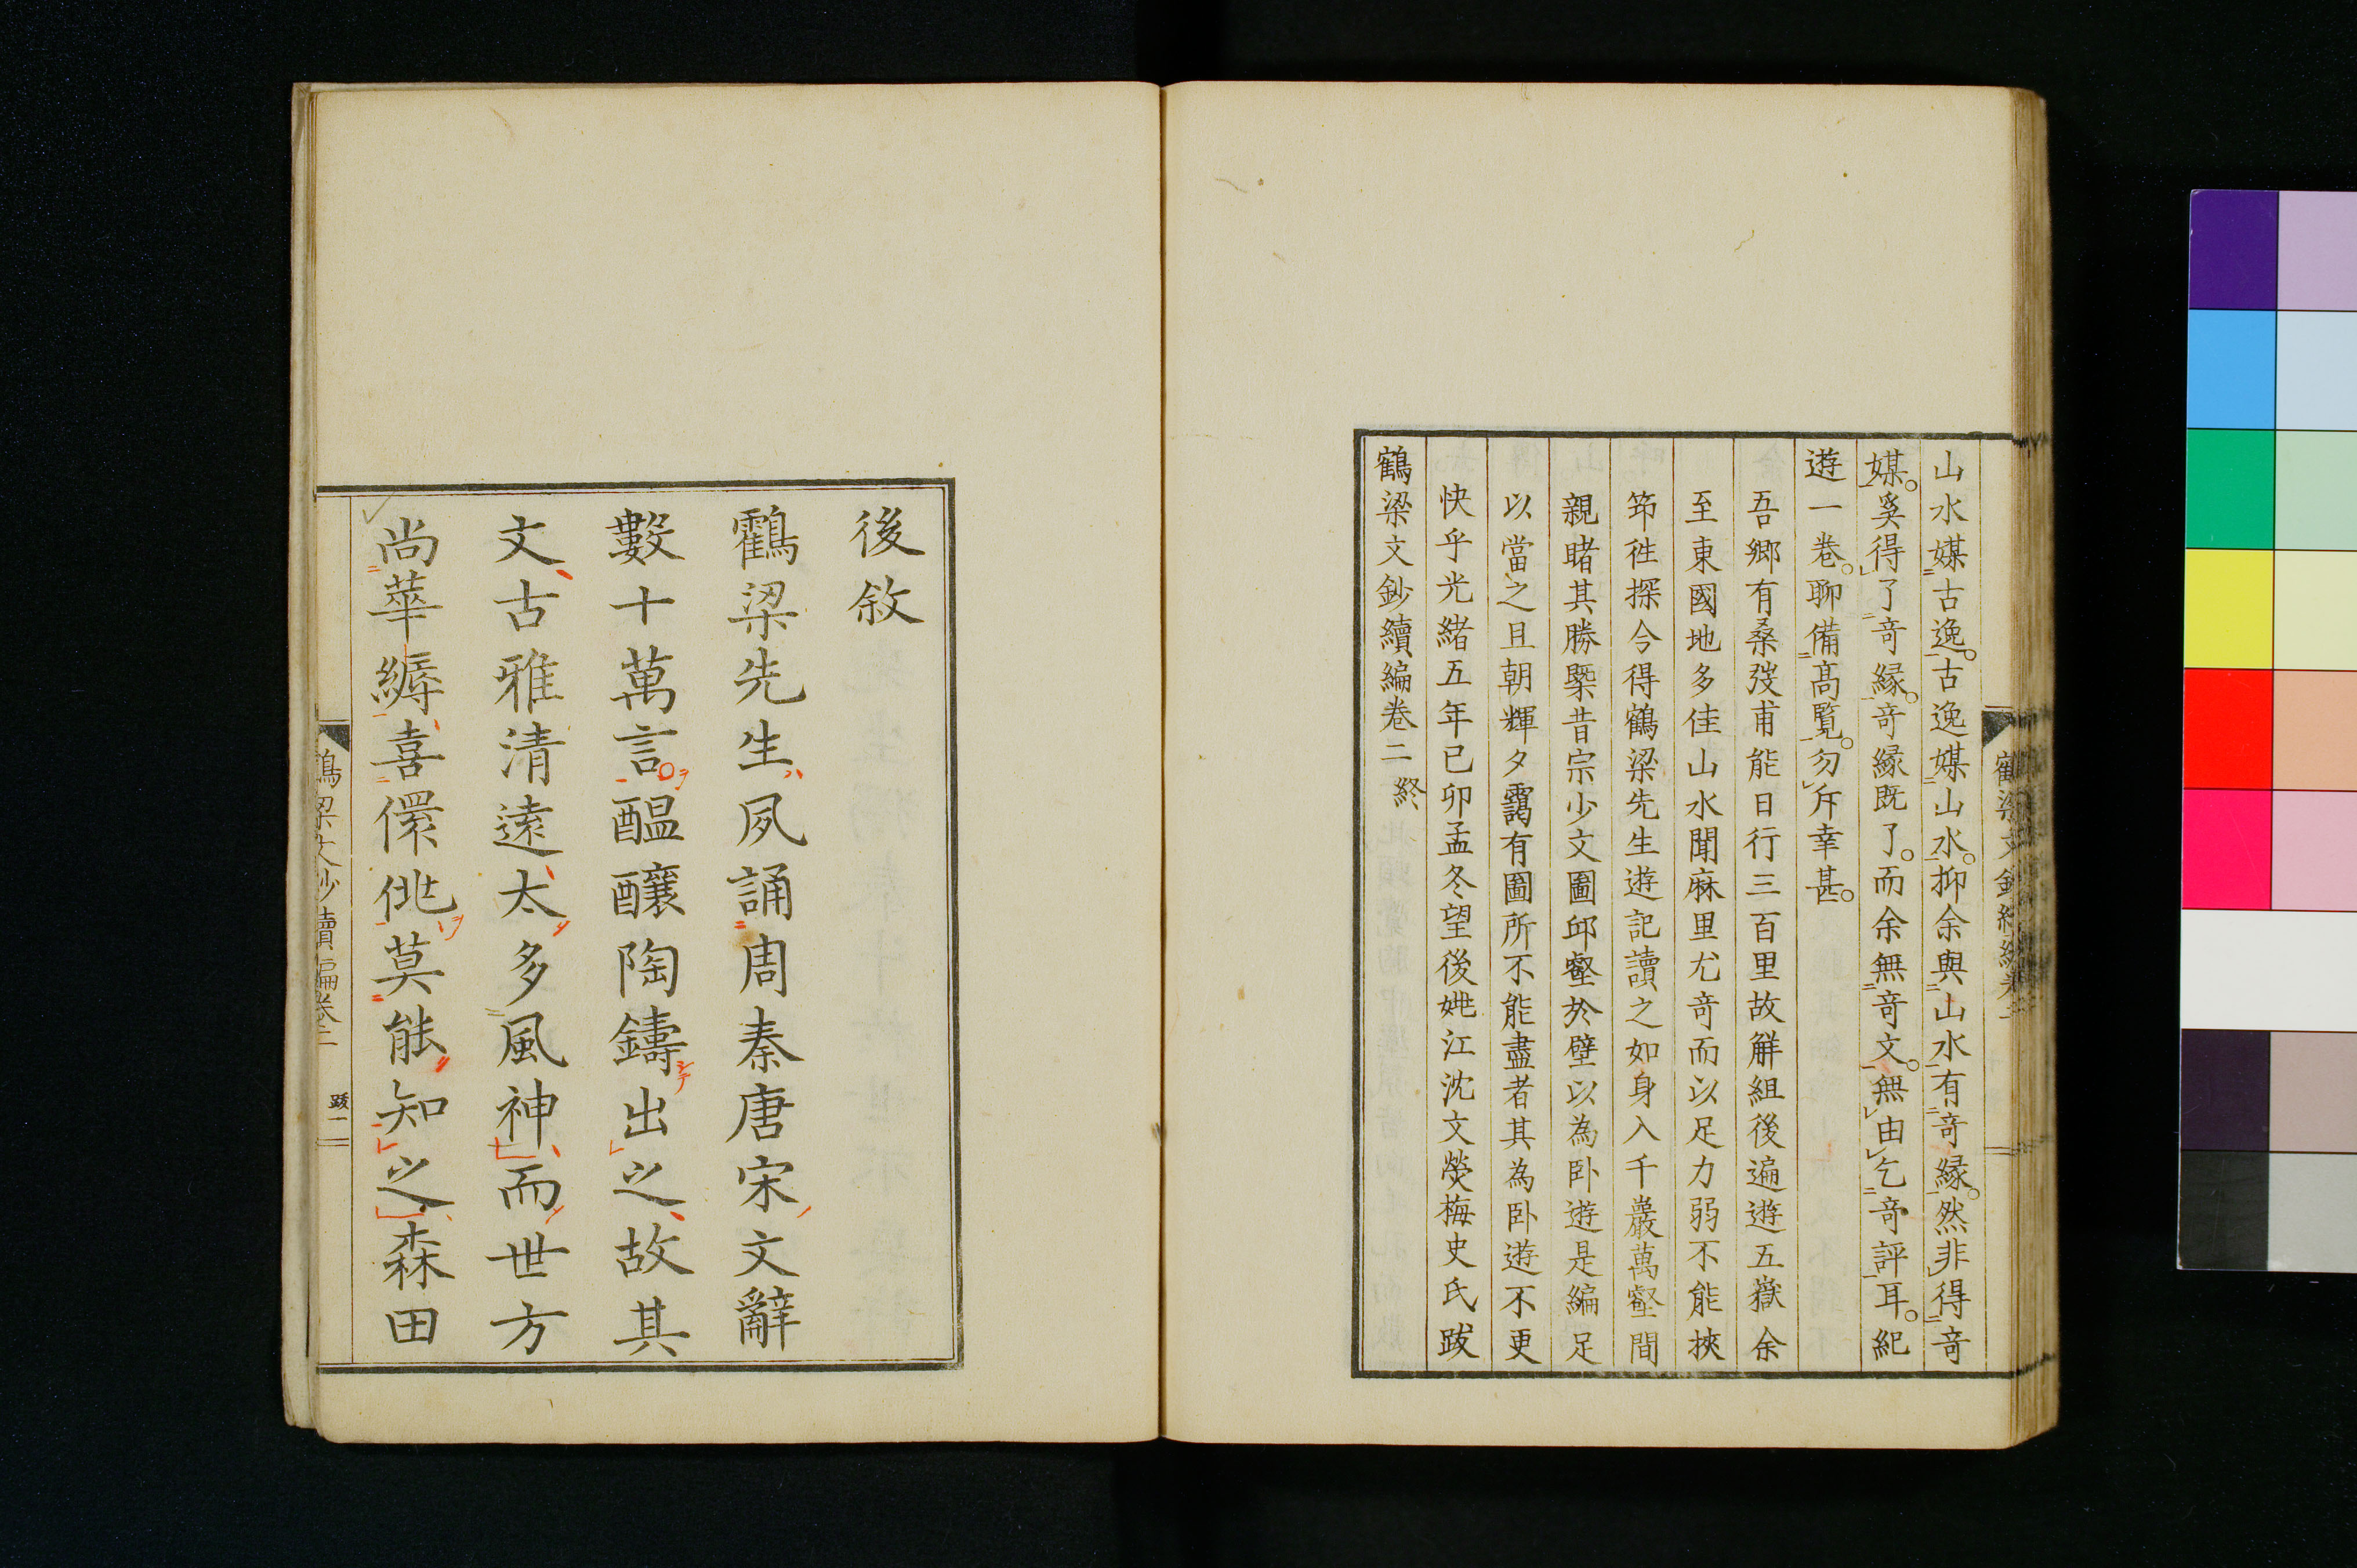 山水媒古逸。古逸媒山水。抑余與山水有奇緣。然非得奇
媒。奚得了奇緣。奇緣既了。而余無奇文。無由乞奇評耳。紀
遊一卷。聊備高覽。勿斥幸甚。
吾鄉有桑弢甫能日行三百里故解組後遍遊五嶽余
至東國地多佳山水聞麻里尤奇而以足力弱不能挾
筇徃探今得鶴梁先生遊記讀之如身入千巖萬壑間
親睹其勝槩昔宗少文圖邱壑於壁以為臥遊是編足
以當之且朝輝夕靄有圖所不能盡者其為臥遊不更
快乎光緒五年已卯孟冬望後姚江沈文熒梅史氏跋
鶴梁文鈔續編卷二 終
後敘
鶴梁先生夙誦周秦唐宋文辭
數十萬言醞釀陶鑄出之故其
文古雅清遠太多風神而世方
尚華縟喜儇佻莫能知之森田
鶴梁文鈔續編卷二 跋 一